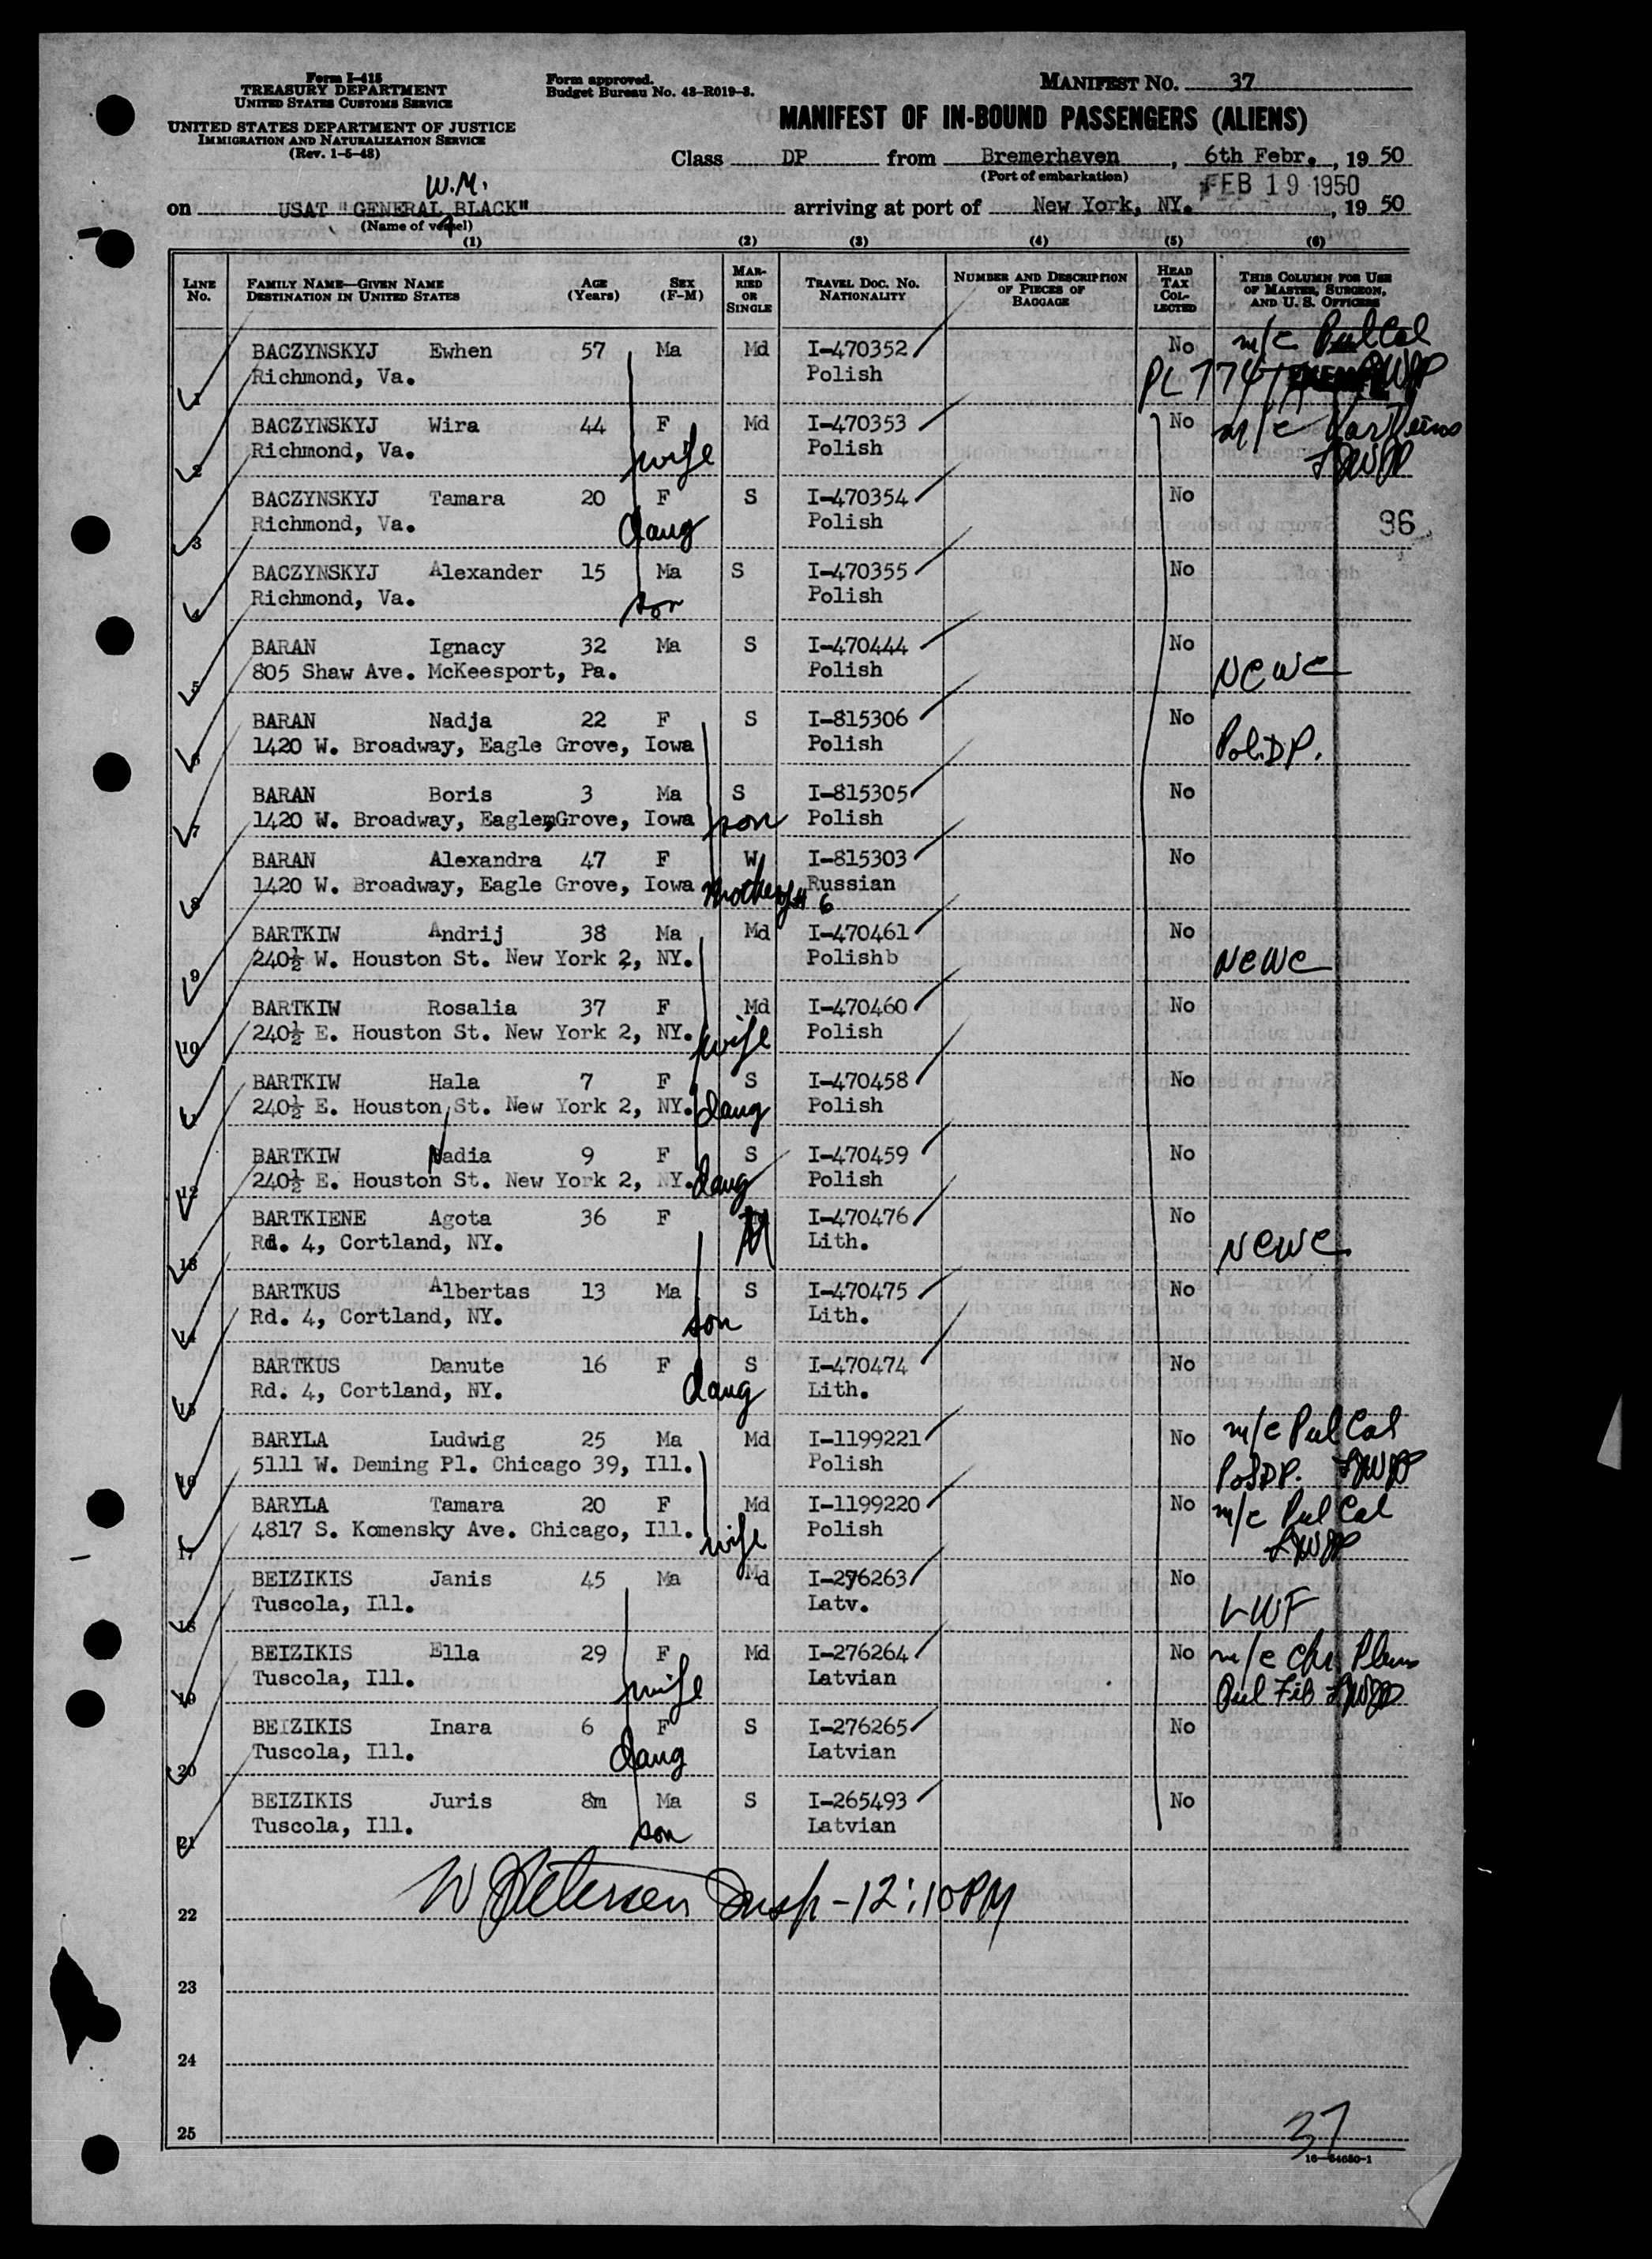 Form I-415
TREASURY DEPARTMENT
UNITED STATES CUSTOMS SERVICE
UNITED STATES DEPARTMENT OF JUSTICE
IMMIGRATION AND NATURALIZATION SERVICE
(Rev. 1-5-48)
Form approved.
Budget Bureau No. 43-R019-3.
MANIFEST NO. 37
MANIFEST OF IN-BOUND PASSENGERS (ALIENS)
Class DP from Bremerhaven, 6th Febr., 19 50
(Port of embarkation)
FEB 19 1950
W.M.
on USAT "GENERAL BLACK" arriving at port of New York, NY. , 19 50
(Name of vessel)
(1) (2) (3) (4) (5) (6)
LINE No. FAMILY NAME—GIVEN NAME DESTINATION IN UNITED STATES AGE (Years) SEX (F-M) MARRIED OR SINGLE TRAVEL DOC. NO. NATIONALITY NUMBER AND DESCRIPTION OF PIECES OF BAGGAGE HEAD TAX COLLECTED THIS COLUMN FOR USE OF MASTER, SURGEON, AND U. S. OFFICERS
BACZYNSKYJ Ewhen 57 Ma Md I-470352 No m/c Pul Cal
1 Richmond, Va. Polish PL 774
BACZYNSKYJ Wira 44 F Md I-470353 No m/c
2 Richmond, Va. wife Polish
BACZYNSKYJ Tamara 20 F S I-470354 No
3 Richmond, Va. daug Polish 36
BACZYNSKYJ Alexander 15 Ma S I-470355 No
4 Richmond, Va. son Polish
BARAN Ignacy 32 Ma S I-470444 No
5 805 Shaw Ave. McKeesport, Pa. Polish NCWC
BARAN Nadja 22 F S I-815306 No
6 1420 W. Broadway, Eagle Grove, Iowa Polish Pol.DP.
BARAN Boris 3 Ma S I-815305 No
7 1420 W. Broadway, Eagle, Grove, Iowa son Polish
BARAN Alexandra 47 F W I-815303 No
8 1420 W. Broadway, Eagle Grove, Iowa mother of # 6 Russian
BARTKIW Andrij 38 Ma Md I-470461 No
9 240½ W. Houston St. New York 2, NY. Polishb NCWC
BARTKIW Rosalia 37 F Md I-470460 No
10 240½ E. Houston St. New York 2, NY. wife Polish
BARTKIW Hala 7 F S I-470458 No
11 240½ E. Houston St. New York 2, NY. daug Polish
BARTKIW Nadia 9 F S I-470459 No
12 240½ E. Houston St. New York 2, NY. daug Polish
BARTKIENE Agota 36 F I-470476 No
13 Rd. 4, Cortland, NY. Lith. NCWC
BARTKUS Albertas 13 Ma S I-470475 No
14 Rd. 4, Cortland, NY. son Lith.
BARTKUS Danute 16 F S I-470474 No
15 Rd. 4, Cortland, NY. daug Lith.
BARYLA Ludwig 25 Ma Md I-1199221 No m/c Pul Cal
16 5111 W. Deming Pl. Chicago 39, Ill. Polish Pol DP.
BARYLA Tamara 20 F Md I-1199220 No m/c Pul Cal
17 4817 S. Komensky Ave. Chicago, Ill. wife Polish
BEIZIKIS Janis 45 Ma Md I-276263 No
18 Tuscola, Ill. Latv. LWF
BEIZIKIS Ella 29 F Md I-276264 No m/c
19 Tuscola, Ill. wife Latvian Pul Fib
BEIZIKIS Inara 6 F S I-276265 No
20 Tuscola, Ill. daug Latvian
BEIZIKIS Juris 8m Ma S I-265493 No
21 Tuscola, Ill. son Latvian
W Petersen Insp-12:10PM
22
23
24
25
37
16—54650-1